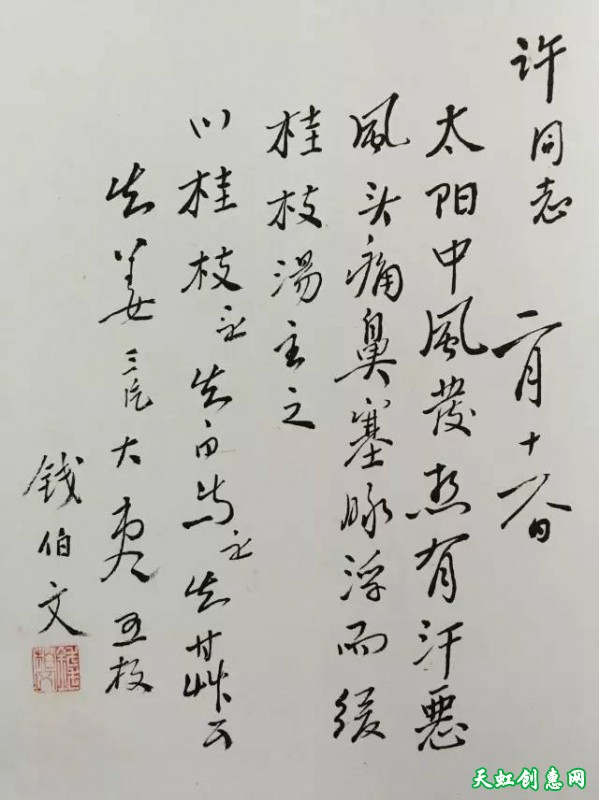 许同志 二月十日
太阳中風發热有汗惡
風头痛鼻塞脉浮而缓
桂枝湯主之
川桂枝 生白芍 生甘草
生姜三片大枣五枚
钱伯文
天虹创惠网